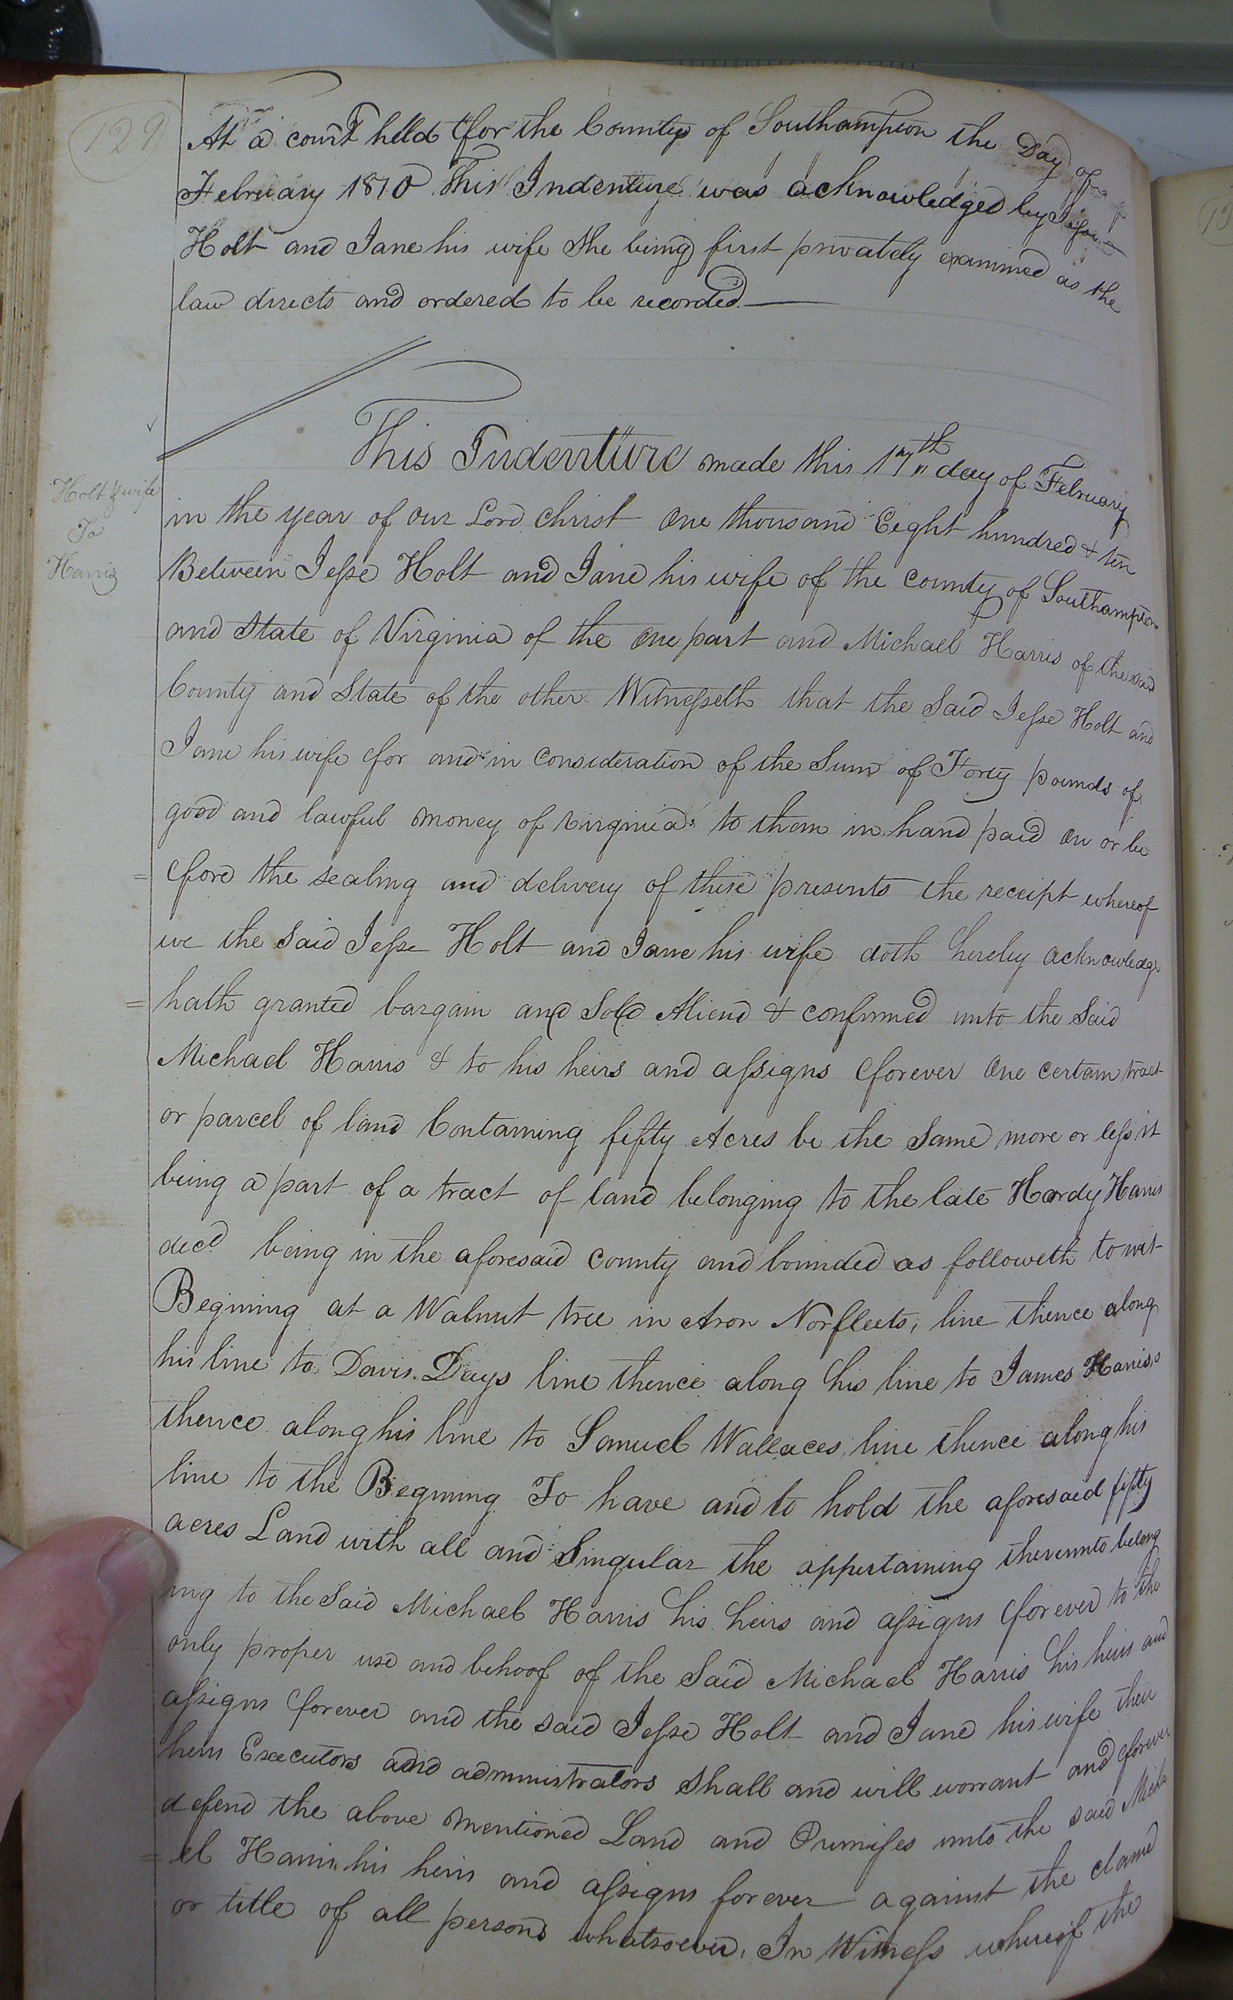 129
At a court held for the County of Southampton the Day of
February 1810 This Indenture was acknowledged by Jesse
Holt and Jane his wife She being first privately examined as the
law directs and ordered to be recorded.
This Indenture made this 17th day of February
Holt & wife
To
Harris
in the year of our Lord Christ One thousand Eight hundred & ten
Between Jesse Holt and Jane his wife of the County of Southampton
and State of Virginia of the One part and Michael Harris of the said
County and State of the other Witnesseth that the Said Jesse Holt and
Jane his wife for and in Consideration of the Sum of Forty pounds of
good and lawful money of Virginia to them in hand paid on or be
=fore the sealing and delivery of these presents the receipt whereof
we the said Jesse Holt and Jane his wife doth hereby acknowledge
=hath granted bargain and Sold Aliend & confirmed unto the Said
Michael Harris & to his heirs and assigns forever One certain tract
or parcel of land Containing fifty Acres be the Same more or less it
being a part of a tract of land belonging to the late Hardy Harris
decd. being in the aforesaid county and bounded as followeth towit
Begining at a Walnut tree in Aron Norfleets, line thence along
his line to Davis Days line thence along his line to James Harris,s
thence along his line to Samuel Wallaces, line thence along his
line to the Begining To have and to hold the aforesaid fifty
acres Land with all and Singular the appertaining thereunto belong
ing to the Said Michael Harris his heirs and assigns forever to the
only proper use and behoof of the Said Michael Harris his heirs and
assigns forever and the said Jesse Holt and Jane his wife their
heirs Executors and administrators Shall and will worrant and forever
defend the above mentioned Land and Premises unto the said Micha
=el Harris his heirs and assigns forever against the clame
or title of all persons whatsoever, In Witness whereof the